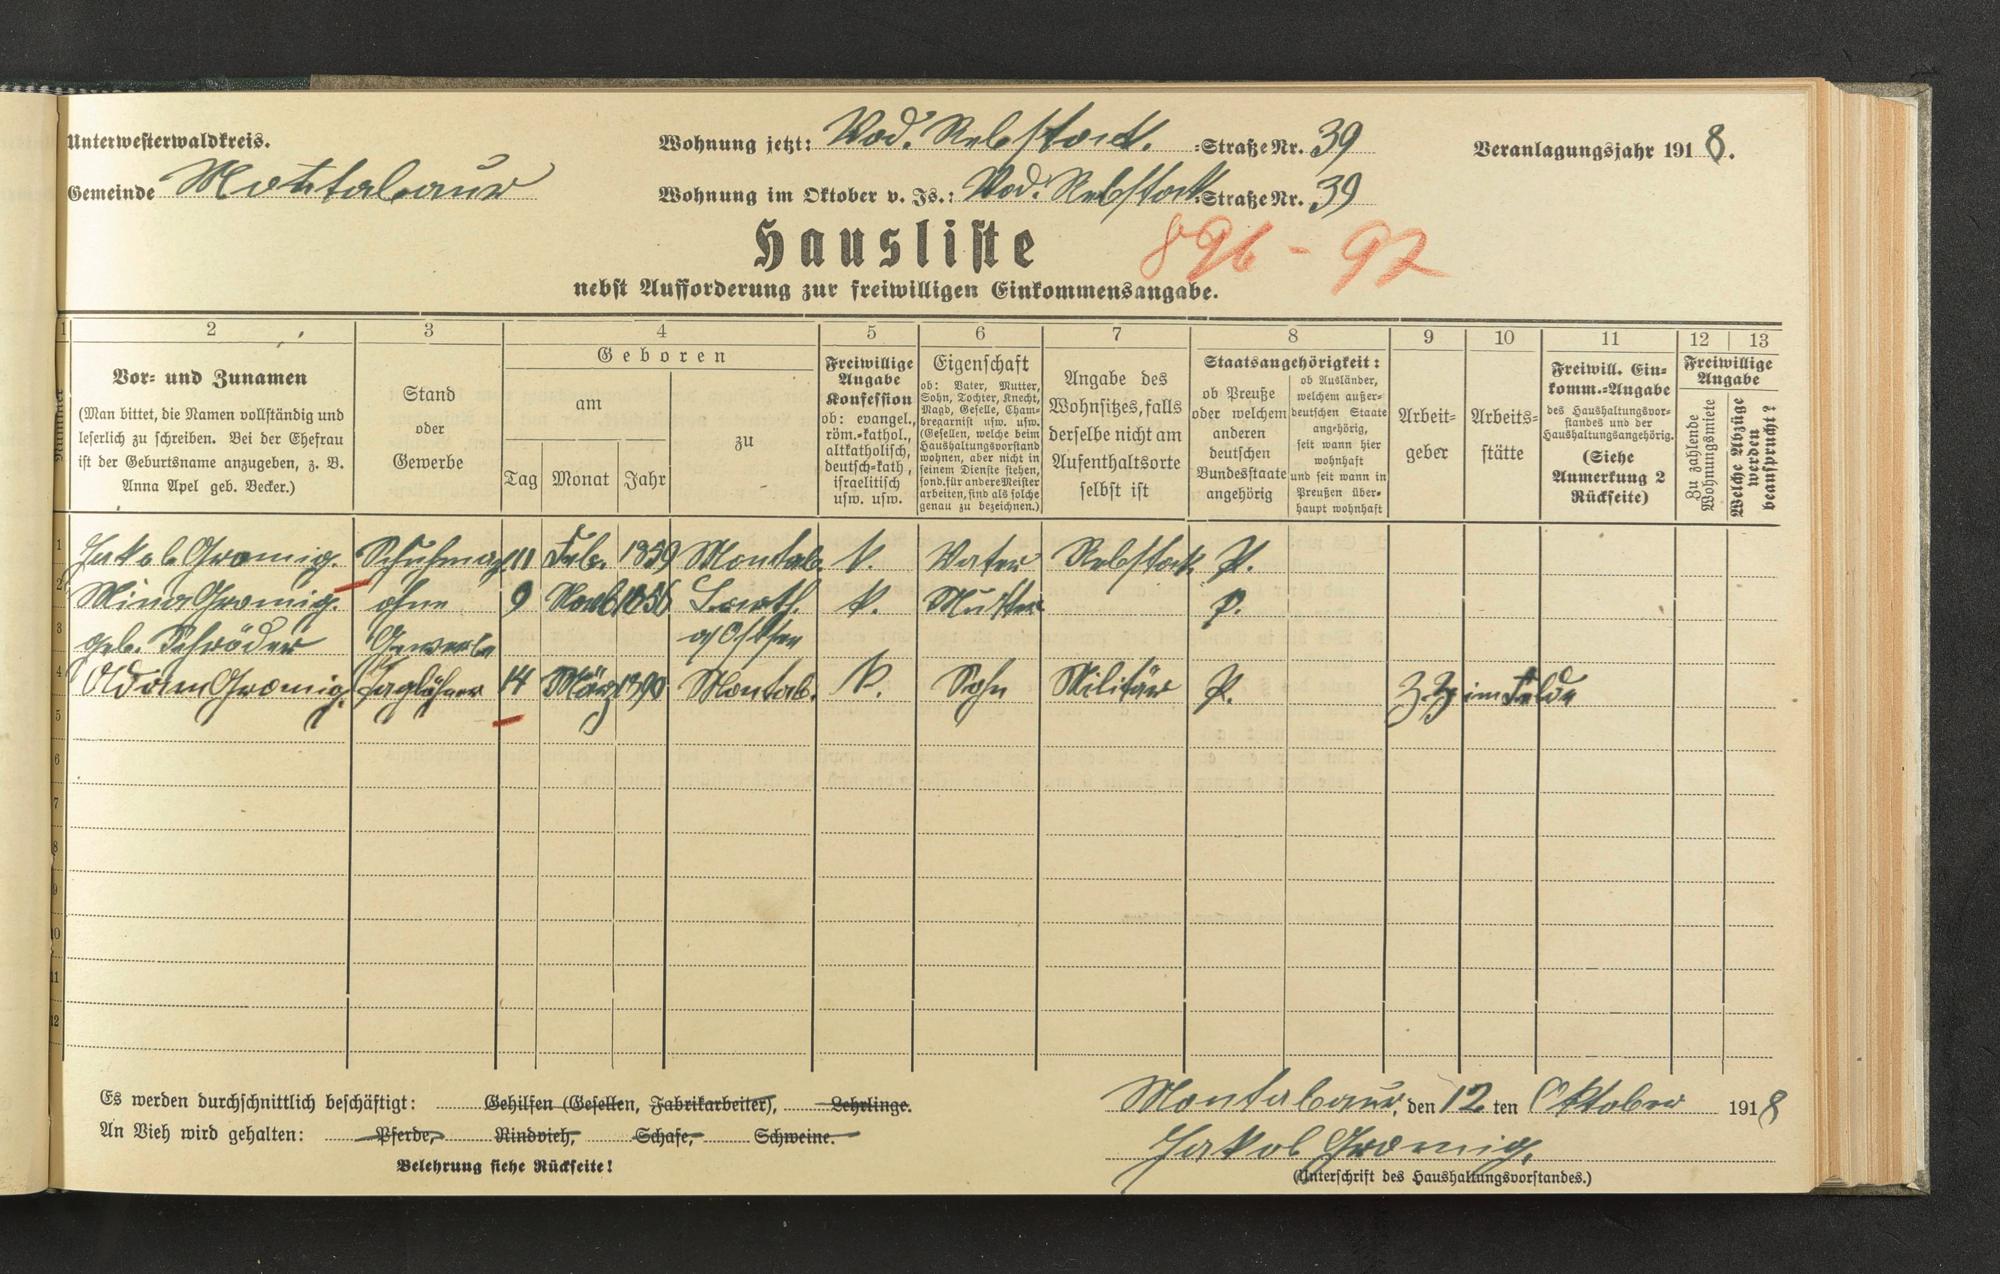 Unterwesterwaldkreis.
Gemeinde Montabaur
Wohnung jetzt: Vod. Rebstock. =Straße Nr. 39
Wohnung im Oktober v. Js.: Vod. Rebstock. Straße Nr. 39
Veranlagungsjahr 1918.
Hausliste
896 - 97
nebst Aufforderung zur freiwilligen Einkommensangabe.
1 2 3 4 5 6 7 8 9 10 11 12 13
Nummer
Vor- und Zunamen
(Man bittet, die Namen vollständig und
leserlich zu schreiben. Bei der Ehefrau
ist der Geburtsname anzugeben, z. B.
Anna Apel geb. Becker.)
Stand
oder
Gewerbe
Geboren
am
Tag Monat Jahr
zu
Freiwillige
Angabe
Konfession
ob: evangel.,
röm.-kathol.,
altkatholisch,
deutsch-kath.,
israelitisch
usw. usw.
Eigenschaft
ob: Vater, Mutter,
Sohn, Tochter, Knecht,
Magd, Geselle, Cham-
bregarnist usw. usw.
(Gesellen, welche beim
Haushaltungsvorstand
wohnen, aber nicht in
seinem Dienste stehen,
sond. für andere Meister
arbeiten, sind als solche
genau zu bezeichnen.)
Angabe des
Wohnsitzes, falls
derselbe nicht am
Aufenthaltsorte
selbst ist
Staatsangehörigkeit:
ob Preuße
oder welchem
anderen
deutschen
Bundesstaate
angehörig
ob Ausländer,
welchem außer-
deutschen Staate
angehörig,
seit wann hier
wohnhaft
und seit wann in
Preußen über-
haupt wohnhaft
Arbeit-
geber
Arbeits-
stätte
Freiwill. Ein-
komm.-Angabe
des Haushaltungsvor-
standes und der
Haushaltungsangehörig.
(Siehe
Anmerkung 2
Rückseite)
Freiwillige
Angabe
Zu zahlende
Wohnungsmiete
Welche Abzüge
werden
beansprucht?
1 Jakob Gromig. Schuhmag 11 Feb. 1859 Montab. k. Vater Rebstock P.
2 Mina Gromig. ohne 9 k. Mutter P.
3 geb. Schröder Gewerbe a/ Ostsee
4 Adam Gromig. Taglöhner 14 März 1890 Montab. k. Sohn Militär P. Z. Zt im Felde
5
6
7
8
9
10
11
12
Es werden durchschnittlich beschäftigt: Gehilfen (Gesellen, Fabrikarbeiter), Lehrlinge.
An Vieh wird gehalten: Pferde, Rindvieh, Schafe, Schweine.
Belehrung siehe Rückseite!
Montabaur, den 12 ten Oktober 1918
Jakob Gromig.
(Unterschrift des Haushaltungsvorstandes.)